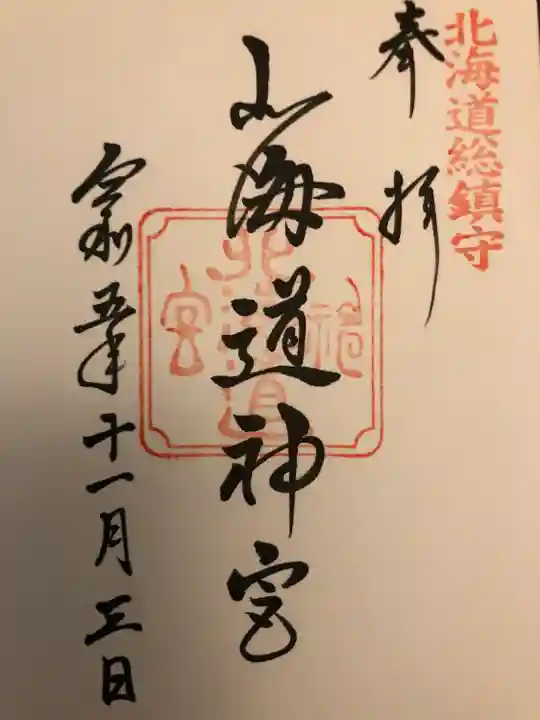 北海道総鎮守
奉拝
北海道神宮
北海道神宮
令和五年十一月三日